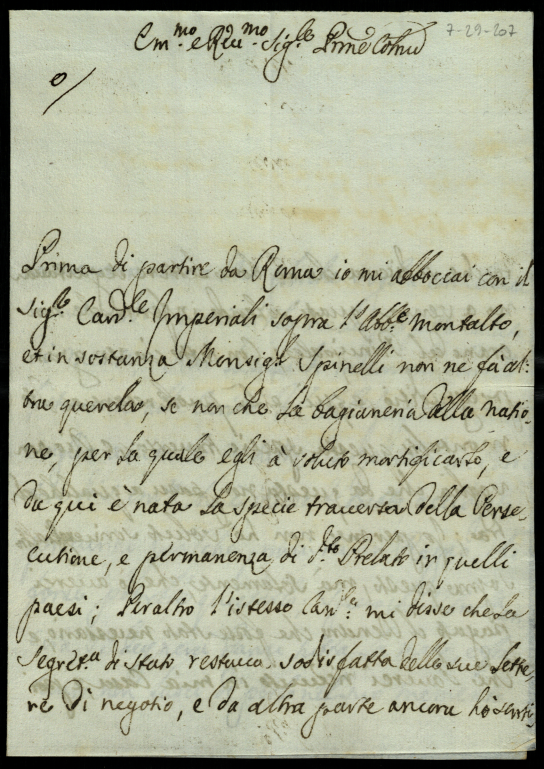 7-29-207
Em.mo e Rev.mo Sig.re Prne Colmo
Prima di partire da Roma io mi abboccai con il
Sig.re Card.le Imperiali sopra l'Abb.e Montalto,
et in sostanza Monsig.r Spinelli non ne fà al:
tra querela, se non che la bagianeria della natio:
ne, per la quale egli à voluto mortificarlo, e
da qui è nata la specie traversa della Perse:
cutione, e permanenza di d.to Prelato in quelli
paesi; Peraltro l'istesso Card.le mi disse che la
Segret.a di stato restava sodisfatta delle sue lette:
re di negotio, e da altra parte ancora hò senti: